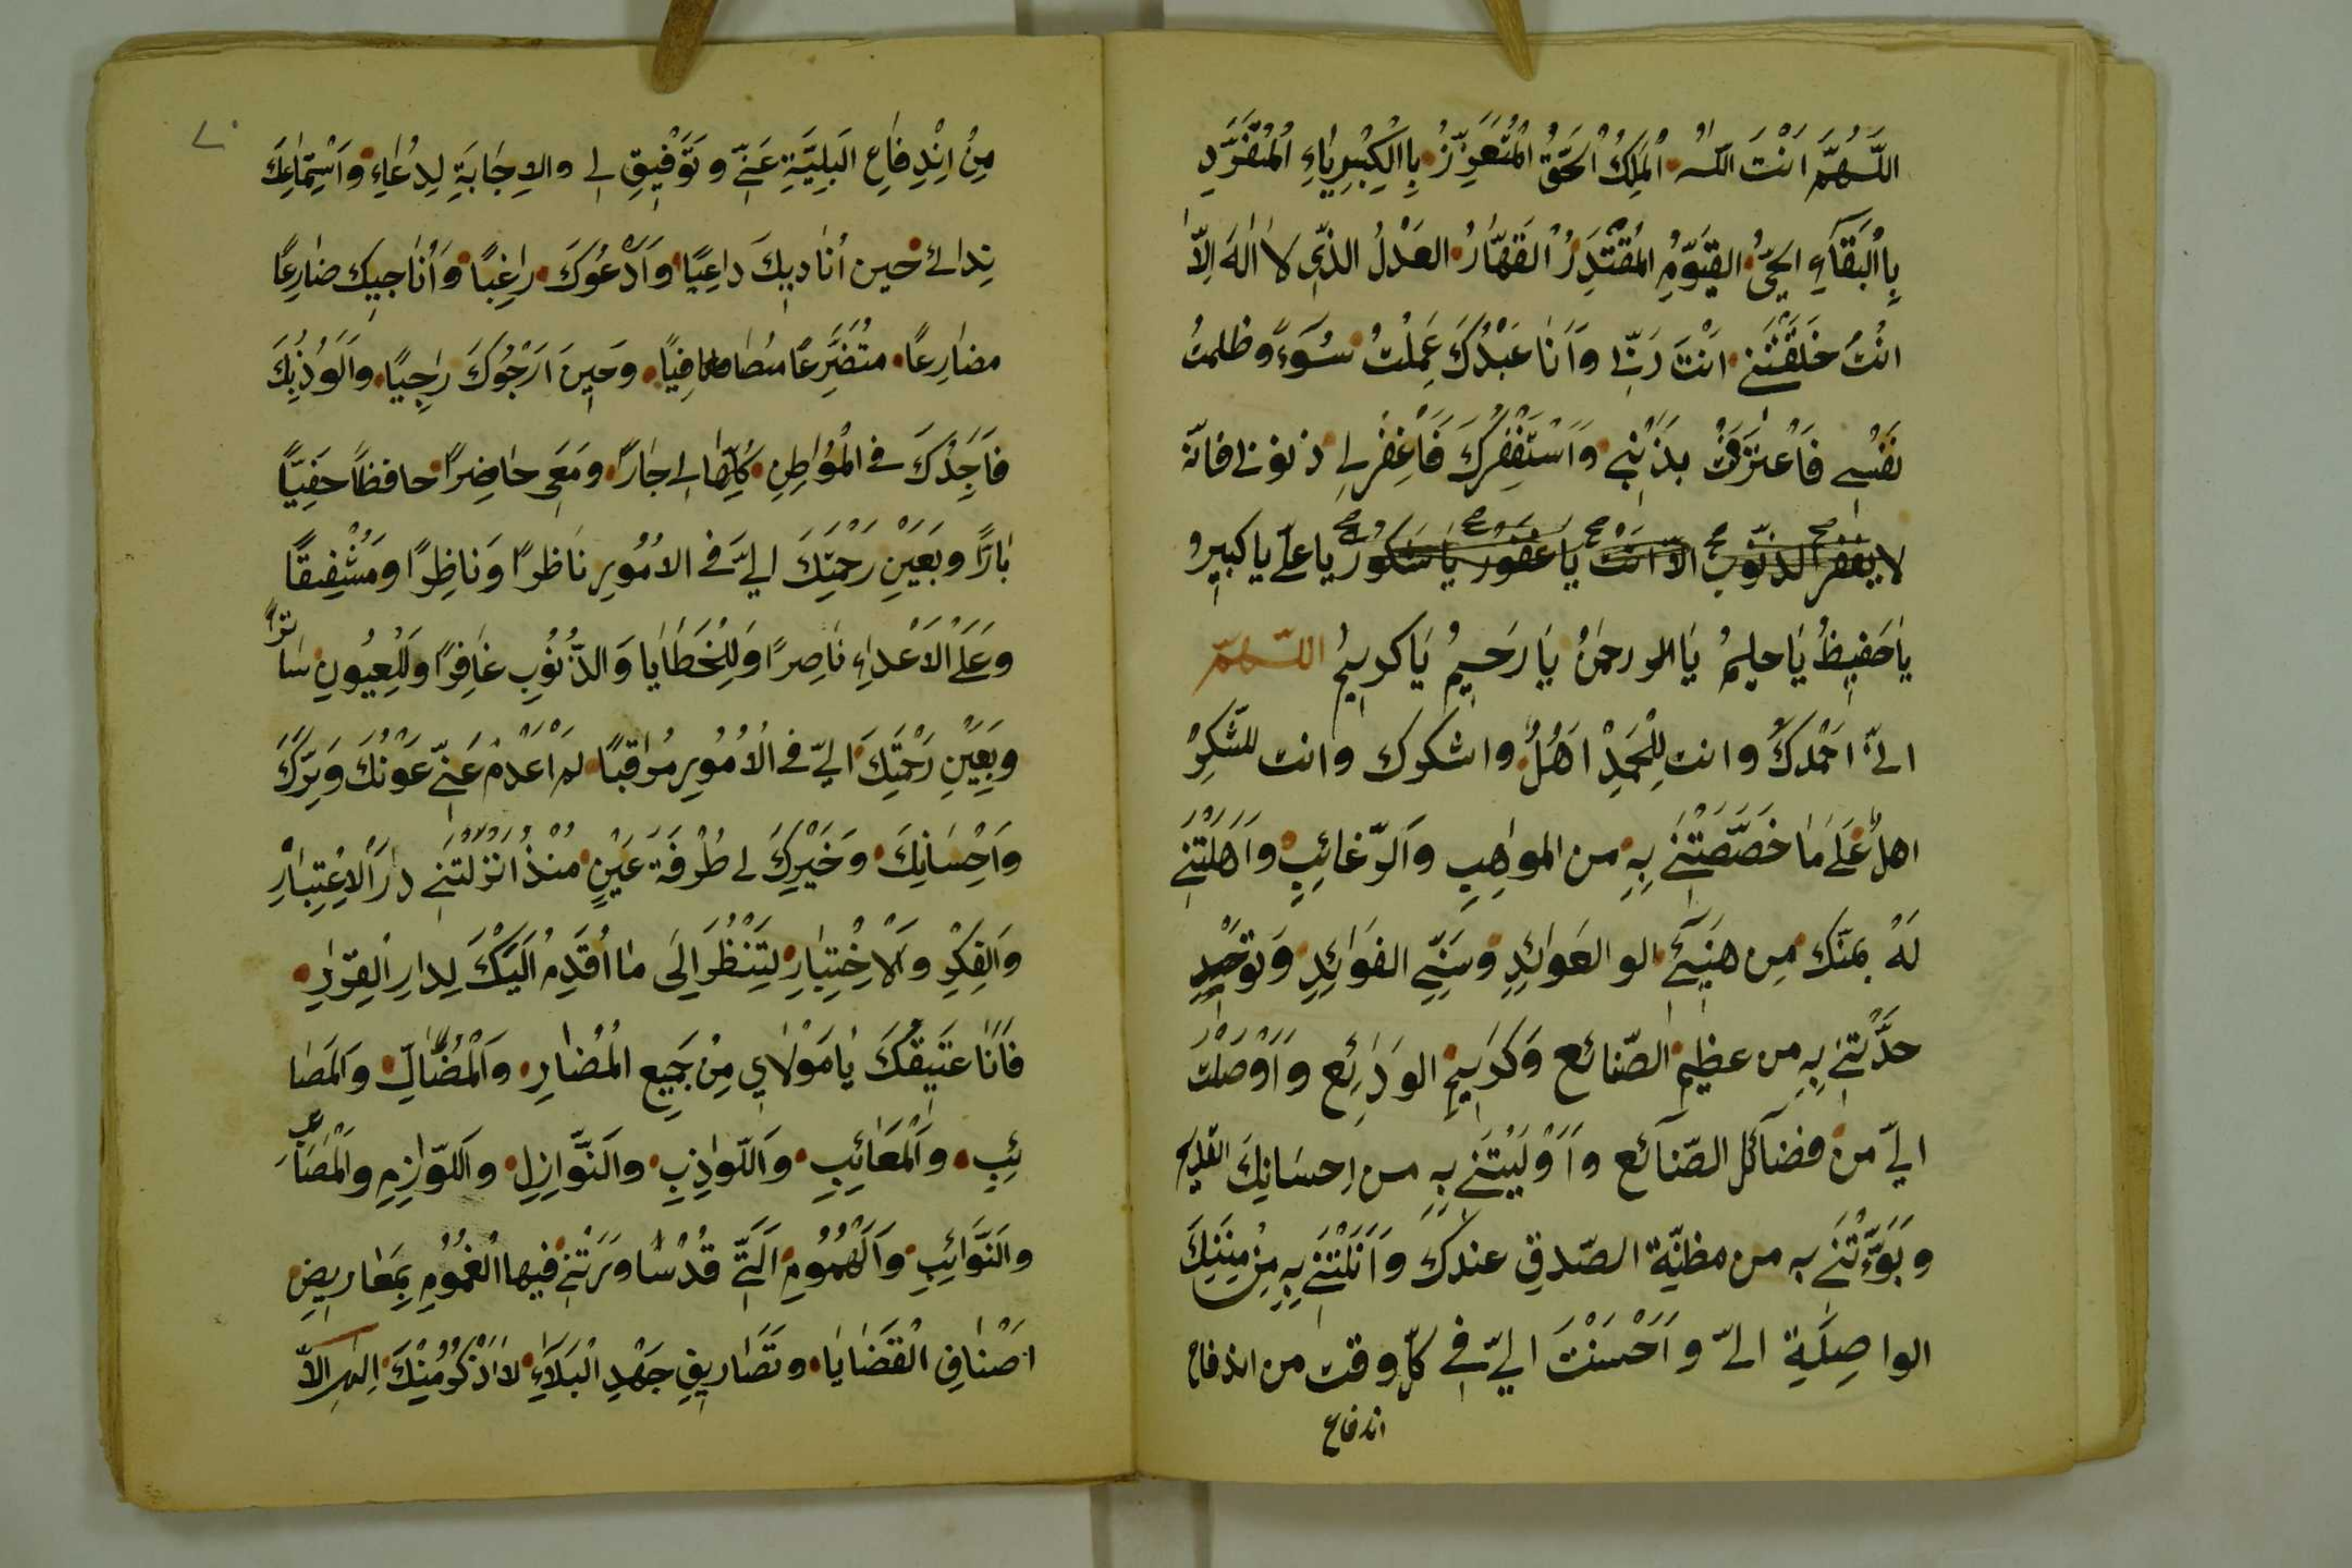 اللّٰهُمَّ اَنْتَ اللّٰهُ الْمَلِكُ الْحَقُّ الْمُتَعَزِّزُ بِاالْكِبْرِيَاءِ الْمُتَفَرِّدِ
بِاالْبَقَآءِ الْحَيُّ الْقَيُّوْمُ الْمُقْتَدِرُ الْقَهَّارُ الْعَدْلُ الَّذِي لَا اِلٰهَ اِلَّا
انْتَ خَلَقْتَنِي اَنْتَ رَبِّي وَاَنَا عَبْدُكَ عَمِلْتُ سُوَءً وظلمتُ
نَفْسِي فَاعْتَرَفْتُ بِذَنْبِي وَاَسْتَغْفِرُكَ فَاغْفِرْ لِي ذنوبي فانّه
لا يغفر الذنوب الّا انت يا غَفُوْر يا شَكُوْرُ يا علىّ يا كبيرُ
يا حَفِيظُ يَا حليمُ يَا رحمٰنُ يَا رَحِيمُ يَا كريمُ اللّٰهمّ
انّي احْمدُكَ وانت لِلْحَمْدِ اَهْلٌ واشكرك وانت للشّكرِ
اهلٌ عَلَى مَا خَصَّصْتَنِي بِهِ من المواهِبِ وَالرّغائِبِ وَاَهَّلْتَنِي
لَهُ بمنّك مِن هَنِيئِ العَوائِدِ وَسَنِيّ الفَوَائِدِ وَتَوحِيْدِ
حَدَّثْتَنِي بِهِ من عظيم الصّنائع وَكَرِيْمِ الوَدَائِع وَاَوْصَلْتَ
اليّ من فضآئل الصّنآئع وَاَوْلَيْتَنِي بِهِ من اِحسَانِكَ القديم
وبَوَّءْتَنِي به من مظنّة الصّدقِ عندك وَاَنَلْتَنِي بِهِ مِنْ مِنَنِكَ
الواصِلَةِ اليّ وَاَحْسَنْتَ اليّ في كلّ وقت من اندفاع
اندفاع
٧٠
مِنْ اِنْدِفَاعِ البَلِيَّةِ عَنِّي وتَوْفِيْقٍ لي والاِجَابَةِ لِدُعَاءِ وَاسْتِمَاعِكَ
نِدائي حين اُنادِيكَ دَاعِيًا وَاَدْعُوكَ رَاغِبًا وَاُنَاجِيك ضارِعًا
مضارِعًا متضَرِّعًا مصافِيًا وحِينَ اَرْجُوكَ رَاجِيًا وَالُوْذُبِكَ
فَاَجِدُكَ في الْمَوَاطِنِ كُلِّهَا لي جارًا ومَعِي حَاضِرًا حافظًا حَفِيًّا
بَارًّا وبَعَيْنِ رَحْمَتِكَ اليَّ في الامُوْرِ ناظرًا وَنَاظِرًا ومُشْفِقًا
وعَلَى الْاَعْدَاءِ نَاصِرًا وَلِلْخَطَايَا وَالذُّنُوْبِ غَافِرًا ولِلْعُيُونِ سَاترًا
وبِعَيْنِ رَحْمَتِكَ اليّ في الاُمُوْرِ مُرَاقِبًا لم اَعْدَمْ عَنّي عَوْنَكَ وَبِرَّكَ
وَاِحْسَانِكَ وخَيْرَكَ لي طَرْفَةَ عَيْنٍ مُنْذُ اَنْزَلْتَنِي دَارَ الْاِعْتِبَارِ
وَالفِكْرِ وَالْاِخْتِبَارِ لِتَنْظُرَ اِلَى مَا اُقَدِّمُ اِلَيْكَ لِدارِ القَرَارِ
فَاَنَا عَتِيقُكَ يَا مَوْلَاي مِنْ جَمِيعِ الْمُضَارِ وَالْمُضَالِّ وَالمَصَا
ئِبِ وَالْمَعَائِبِ وَاللَّوَازِبِ والنَّوَازِلِ وَاللَّوَازِمِ وَالْمَصَائِبِ
وَالنَّوَائِبِ وَالْهُمُوْمِ الَّتِي قَدْ سَاوَرَتْنِي فيها الغُمُوْمِ بِمَعَارِيضِ
اَصْنَافِ الْقَضَايَا وتَصَارِيفِ جَهْدِ الْبَلَاءِ لَا اَذْكُرُ مِنْكَ اِلٰهي الّا